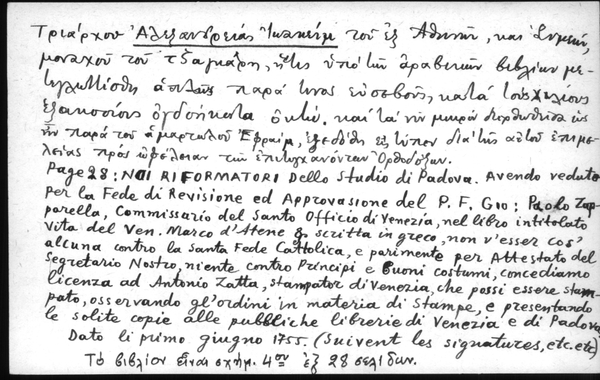 Τριάρχου Ἀλεξανδρείας Ἰωακεὶμ τοῦ ἐξ Ἀθηνῶν, καὶ Συμεὼν,
μοναχοῦ τοῦ τζαγκάρη, ἥτις ὑπὸ τῶν ἀραβικῶν βιβλίων με-
τεγλωττίσθη ἁπλῶς παρά τινος εὐσεβοῦς, κατὰ τοὺς χιλίους
ἑξακοσίους ὀγδοήκοντα ὀκτώ. καὶ τὰ νῦν μικρὸν διορθωθεῖσα ὡς
ἦν παρὰ τοῦ ἁμαρτωλοῦ Ἐφραὶμ, ἐξεδόθη εἰς τύπον διὰ τῆς αὐτοῦ ἐπιμε-
λείας πρὸς ὠφέλειαν τῶν ἐπιτυγχανόντων Ὀρθοδόξων.
Page 28: NOI RIFORMATORI Dello Studio di Padova. Avendo veduto
per la Fede di Revisione ed Approvasione del P. F. Gio: Paolo Zap-
parella, Commissario del Santo Officio di Venezia, nel libro intitolato
Vita del Ven. Marco d'Atene & scritta in greco, non v'esser cos'
alcuna contro la Santa Fede Cattolica, e parimente per Attestato del
Segretario Nostro, niente contro Principi e buoni costumi, concediamo
licenza ad Antonio Zatta, stampator di Venezia, che possi essere stam-
pato, osservando gl'ordini in materia di Stampe, e presentando
le solite copie alle pubbliche librerie di Venezia e di Padova
Dato li primo giugno 1755. (Suivent les signatures, etc. etc)
Τὸ βιβλίον εἶναι σχήμ. 4ου ἐξ 28 σελίδων.